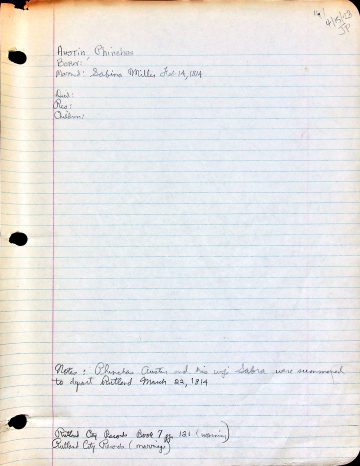 4/15/03
JP
Austin, Phinehas
Born:
Married: Sabina Miller Feb 14, 1814
Died:
Res:
Children:
Notes: Phinehas Austin and his wife Sabra were summoned
to depart Rutland March 22, 1814
Rutland City Records Book 7 pg 121 (warning)
Rutland City Records (marriage)